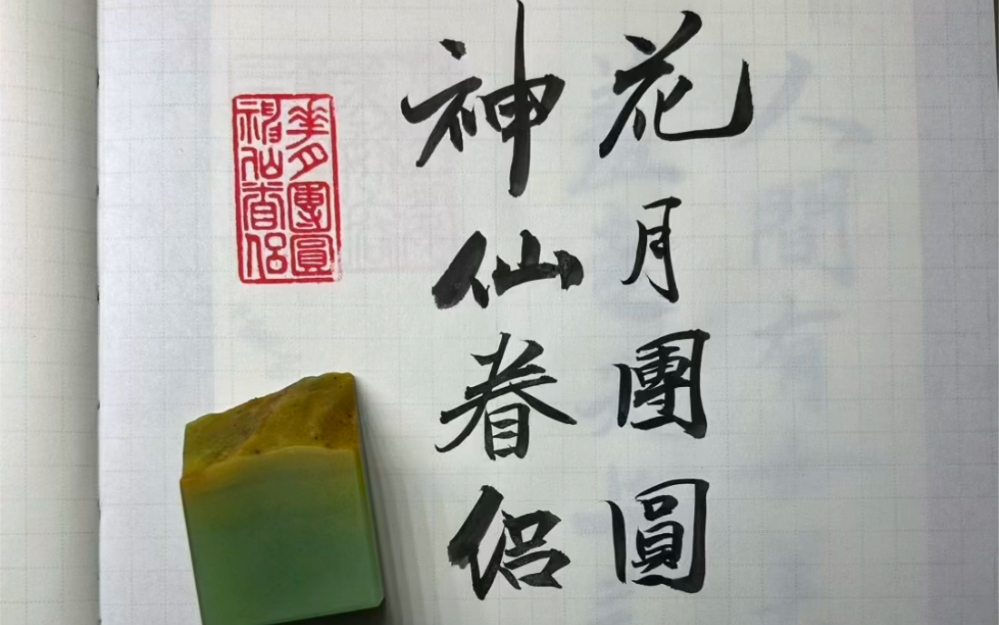 花月團圓
神仙眷侶
華月團圓
神仙眷侶